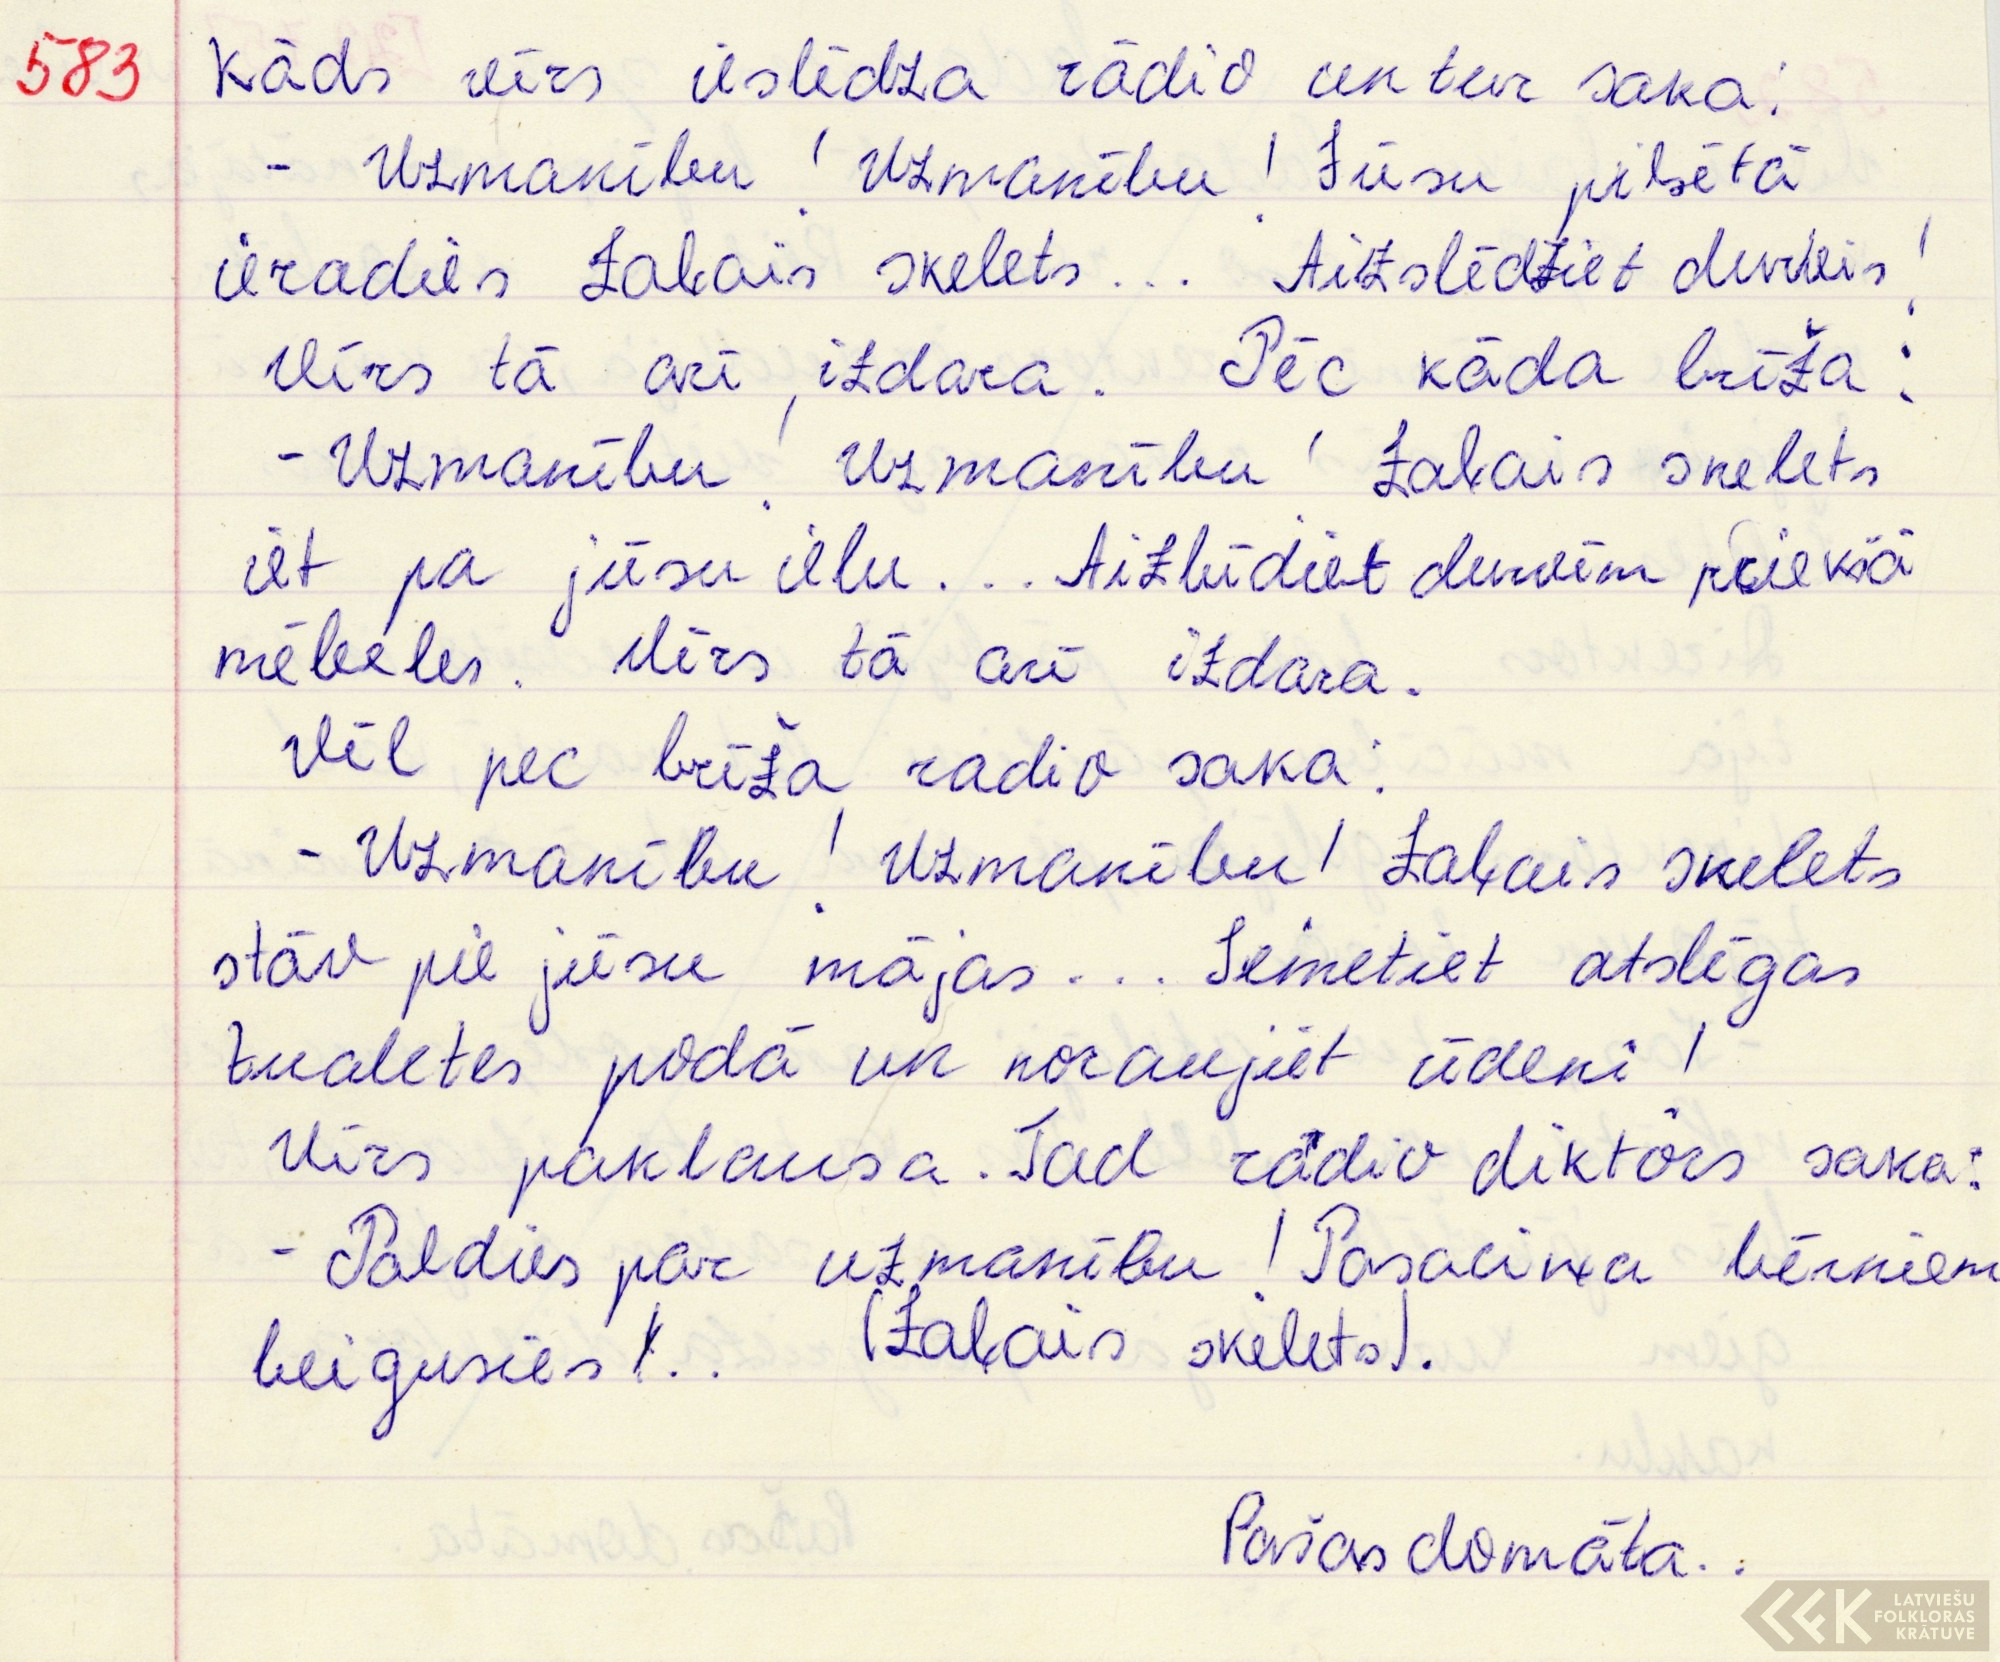 583 Kāds vīrs ieslēdza rādio un tur saka:
- Uzmanību! Uzmanību! Jūsu pilsētā
ieradies zaļais skelets... Aizslēdziet durvis!
Vīrs tā arī izdara. Pēc kāda brīža:
- Uzmanību! Uzmanību! Zaļais skelets
iet pa jūsu ielu... Aizbīdiet durvīm priekšā
mēbeles. Vīrs tā arī izdara.
Vēl pec brīža radio saka:
- Uzmanību! Uzmanību! Zaļais skelets
stāv pie jūsu mājas... Iemetiet atslēgas
tualetes podā un noraujiet ūdeni!
Vīrs paklausa. Tad rādio diktors saka:
- Paldies par uzmanību! Pasaciņa bērniem
beigusies!.. (Zaļais skelets).
Pašas domāta..
LATVIEŠU
FOLKLORAS
KRĀTUVE